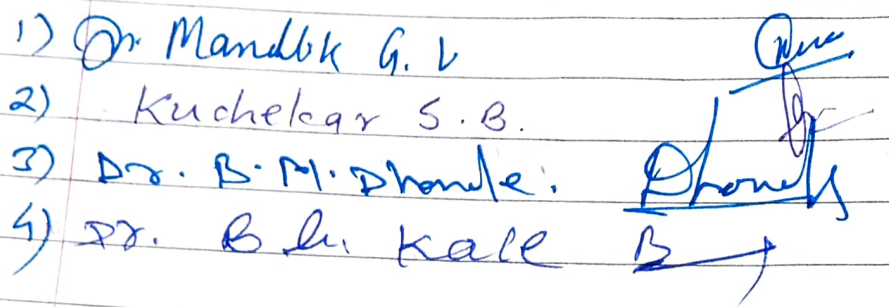 1) Dr. Mandlik G. V
2) Kuchekar S. B.
3) Dr. B. M. Dhonde. Dhonde
4) Dr. B. Kale B